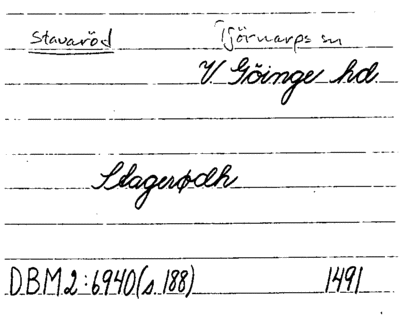 Stavaröd Tjörnarps sn
V Göinge hd
Stagerødh
DBM2:6940(s. 188) 1491